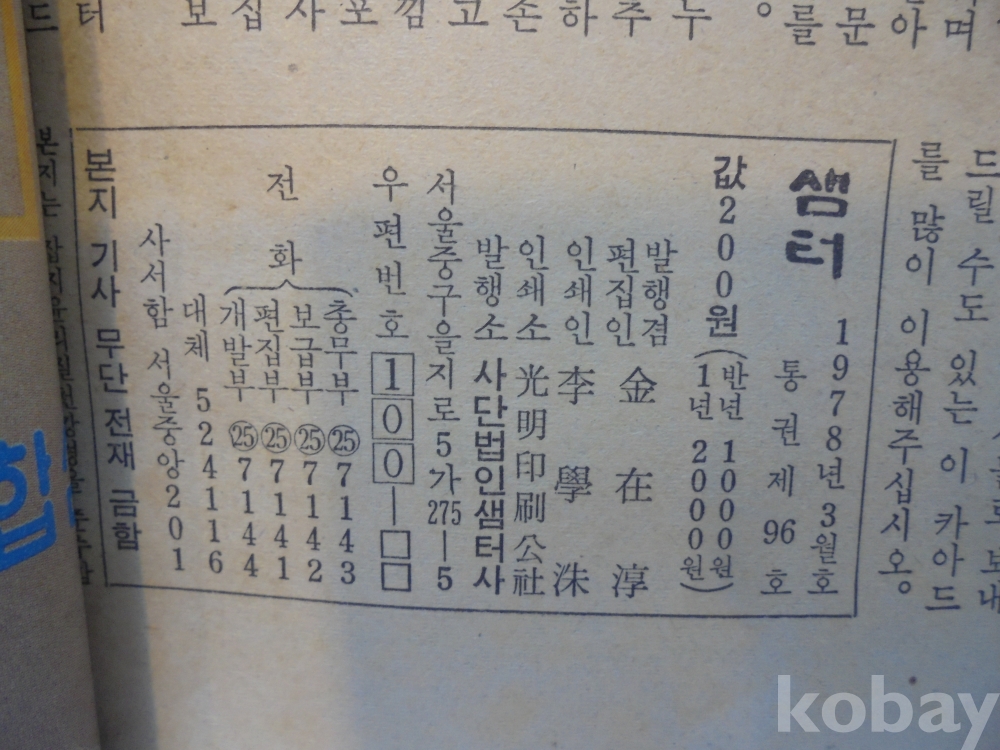 드릴 수도 있는 이 카아드
를 많이 이용해주십시오。
샘터 1978년 3월호
통권 제 96 호
값 200원 (반년 1000원
1년 2000원)
발행겸
편집인 金在淳
인쇄인 李學洙
인쇄소 光明印刷公社
발행소 사단법인샘터사
서울중구을지로5가275―5
우편번호 100―□□
전화
총무부 ㉕7143
보급부 ㉕7142
편집부 ㉕7141
개발부 ㉕7144
대체 524116
사서함 서울중앙201
본지 기사 무단 전재 금함
kobay